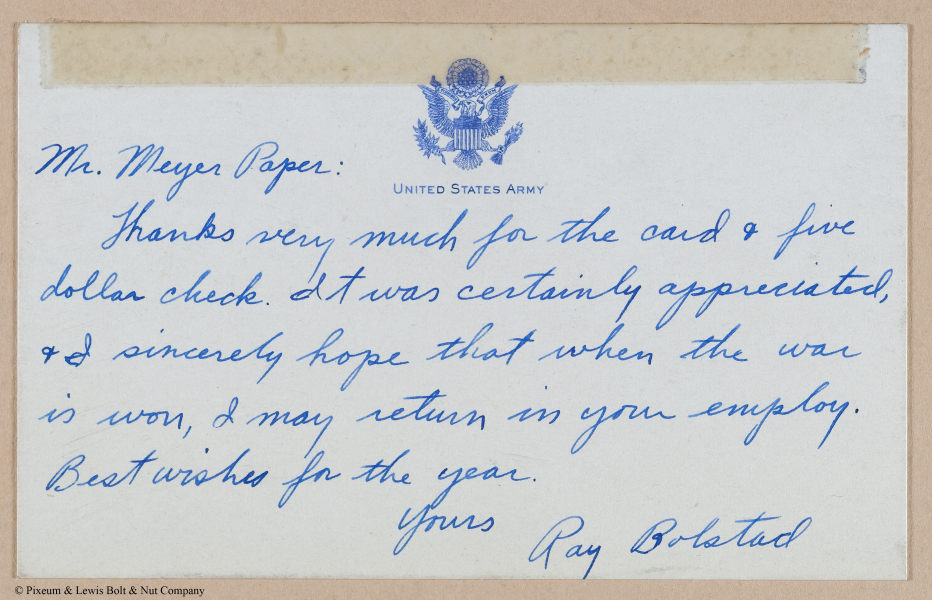 Mr. Meyer Paper:
UNITED STATES ARMY
Thanks very much for the card & five
dollar check. It was certainly appreciated,
& I sincerely hope that when the war
is won, I may return in your employ.
Best wishes for the year.
Yours Ray Bolstad
© Pixeum & Lewis Bolt & Nut Company